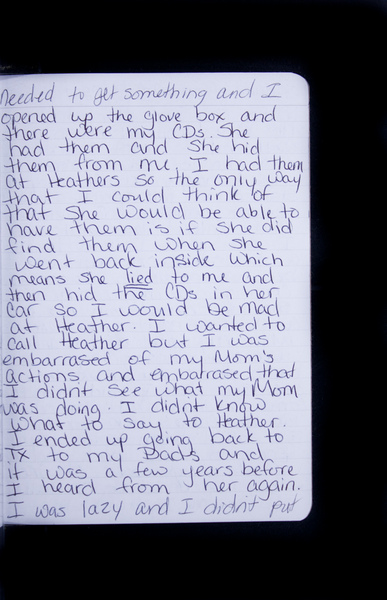 needed to get something and I
opened up the glove box and
there were my CDs. She
had them and she hid
them from me. I had them
at Heathers so the only way
that I could think of
that she would be able to
have them is if she did
find them when she
went back inside which
means she lied to me and
then hid the CDs in her
car so I would be mad
at Heather. I wanted to
call Heather but I was
embarrased of my Mom's
actions and embarrased that
I didnt see what my Mom
was doing. I didnt know
what to say to Heather.
I ended up going back to
TX to my Dads and
it was a few years before
I heard from her again.
I was lazy and I didn't put